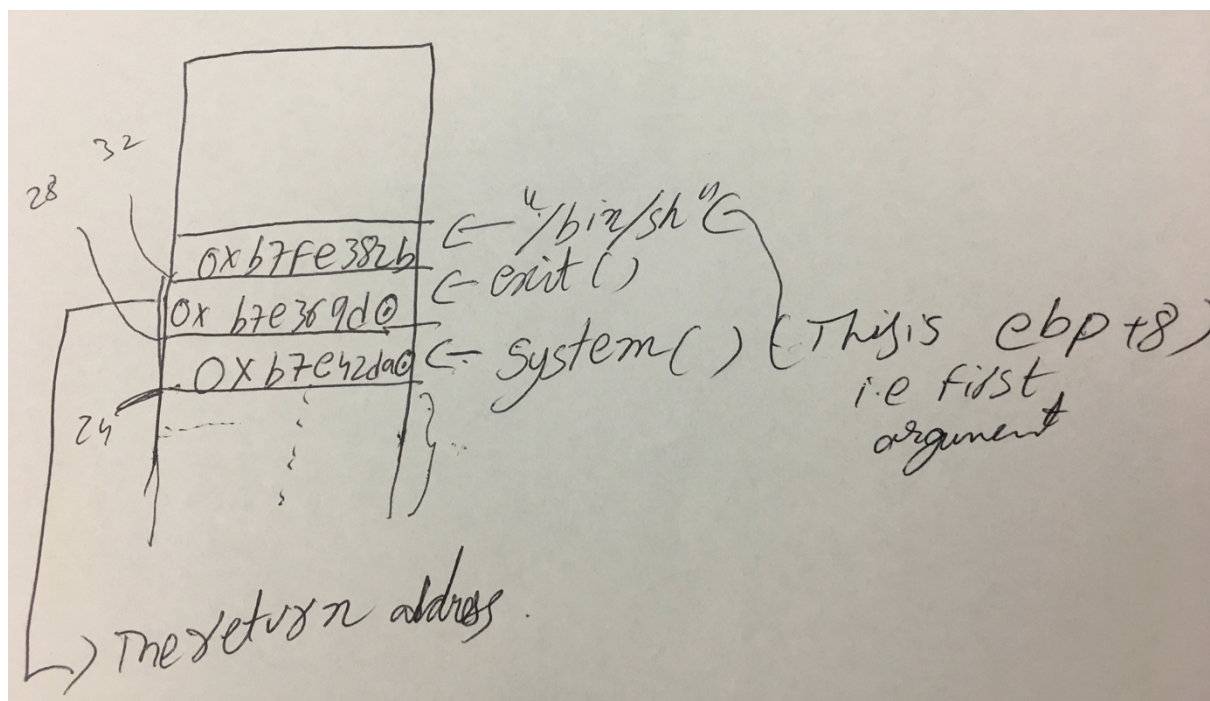 32
28
0xb7fe382b ← "/bin/sh"
0x b7e369d0 ← exit()
0xb7e42da0 ← system() (This is ebp+8)
i.e first
argument
24
The return address.